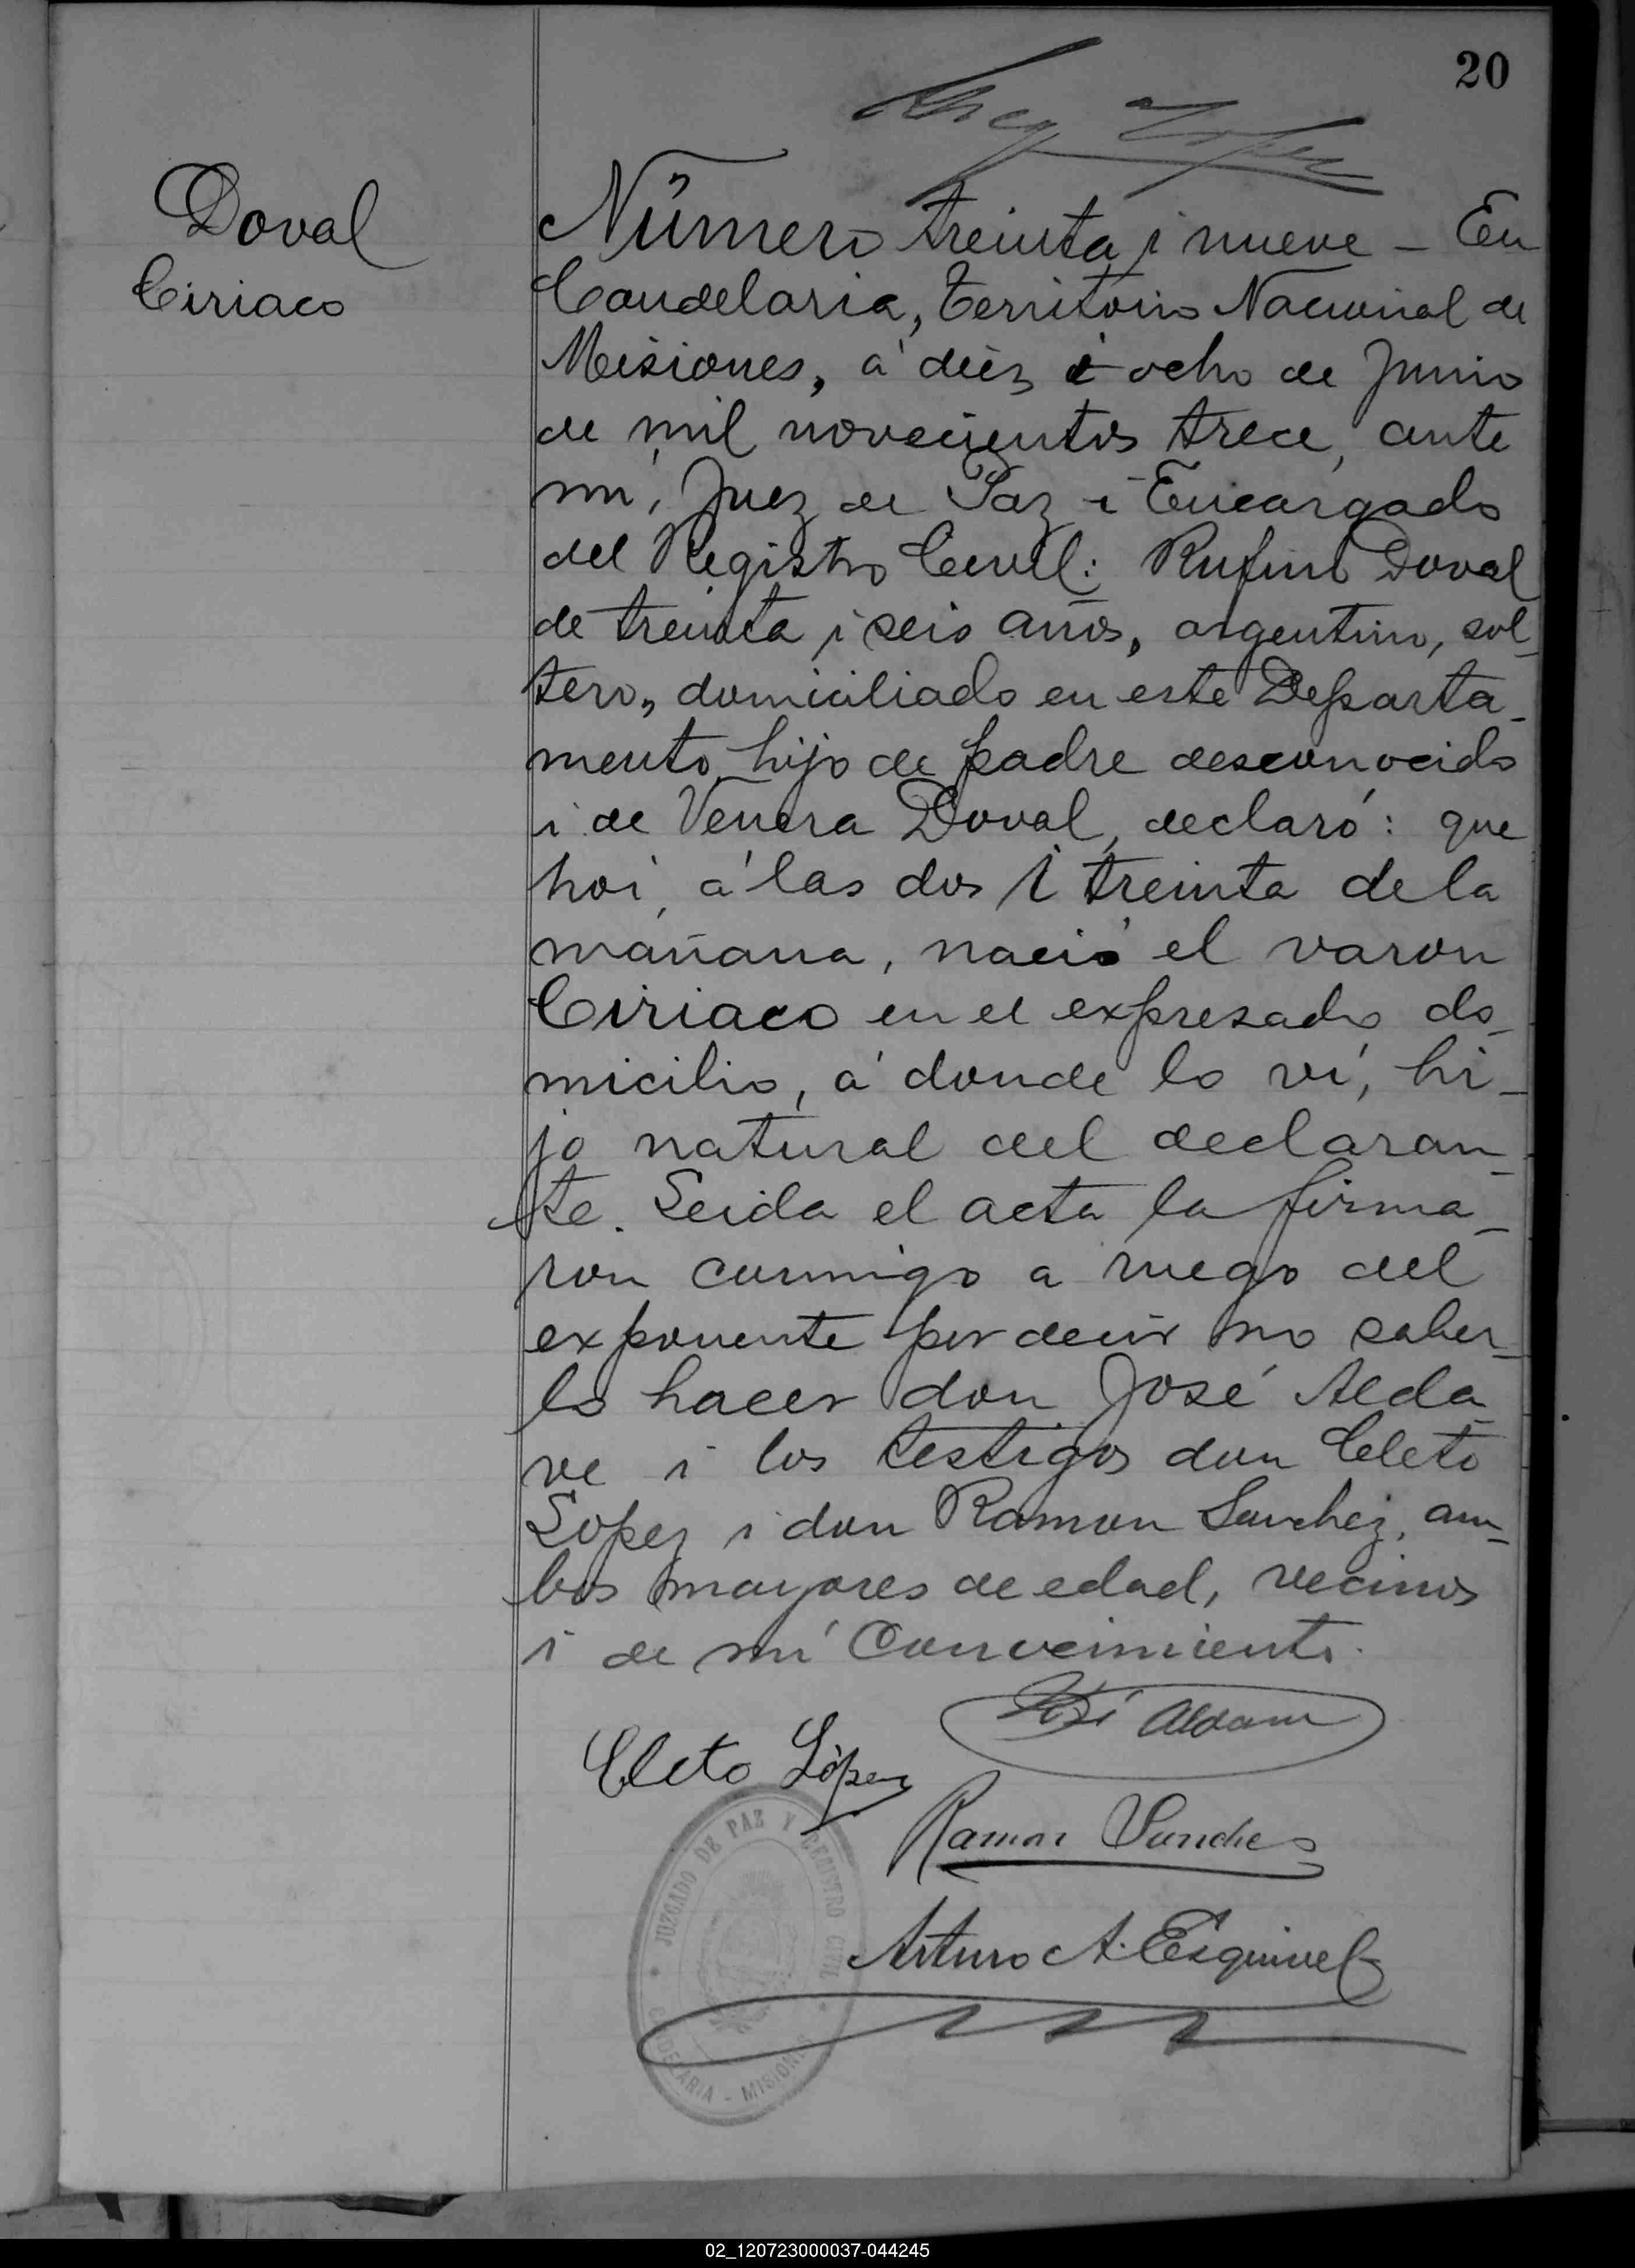 20
Doval
Ciriaco
Número treinta i nueve - En
Candelaria, Territorio Nacional de
Misiones, á diez i ocho de Junio
de mil novecientos trece, ante
mí, Juez de Paz i Encargado
del Registro Civil: Rufino Doval
de treinta i seis años, argentino, sol-
tero, domiciliado en este Departa-
mento, hijo de padre desconocido
i de Venera Doval, declaró: que
hoi, á las dos i treinta de la
mañana, nació el varon
Ciriaco en el expresado do-
micilio, á donde lo ví, hi-
jo natural del declaran-
te. Leida el acta la firma-
ron conmigo a ruego del
exponente por decir no saber-
lo hacer don José Alda-
ve i los testigos don Cleto
Lopez i don Ramon Sanchez, am-
bos mayores de edad, vecinos
i de mi conocimiento.
José Aldave
Cleto López
Ramon Sanches
Arturo A. Esquivel
JUZGADO DE PAZ Y REGISTRO CIVIL
CANDELARIA - MISIONES
02_120723000037-044245